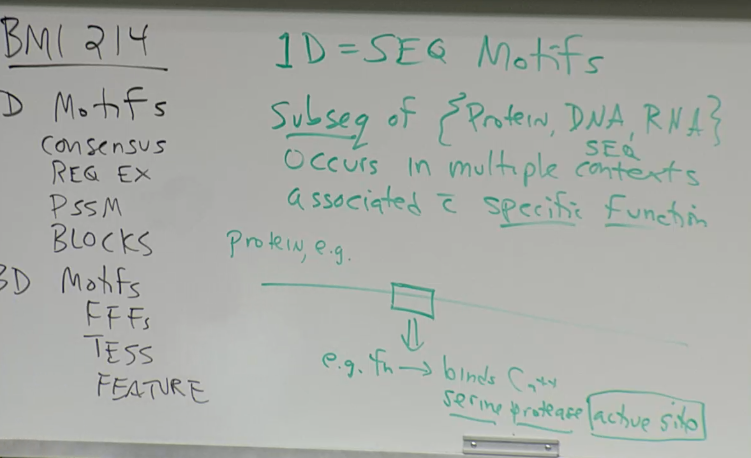 BMI 214
D Motifs
consensus
REG EX
PSSM
BLOCKS
3D Motifs
FFFs
TESS
FEATURE
1D = SEQ Motifs
Subseq of {Protein, DNA, RNA}
SEQ
Occurs in multiple contexts
associated c̄ specific function
Protein, e.g.
e.g. fn → binds Ca++
serine protease active site